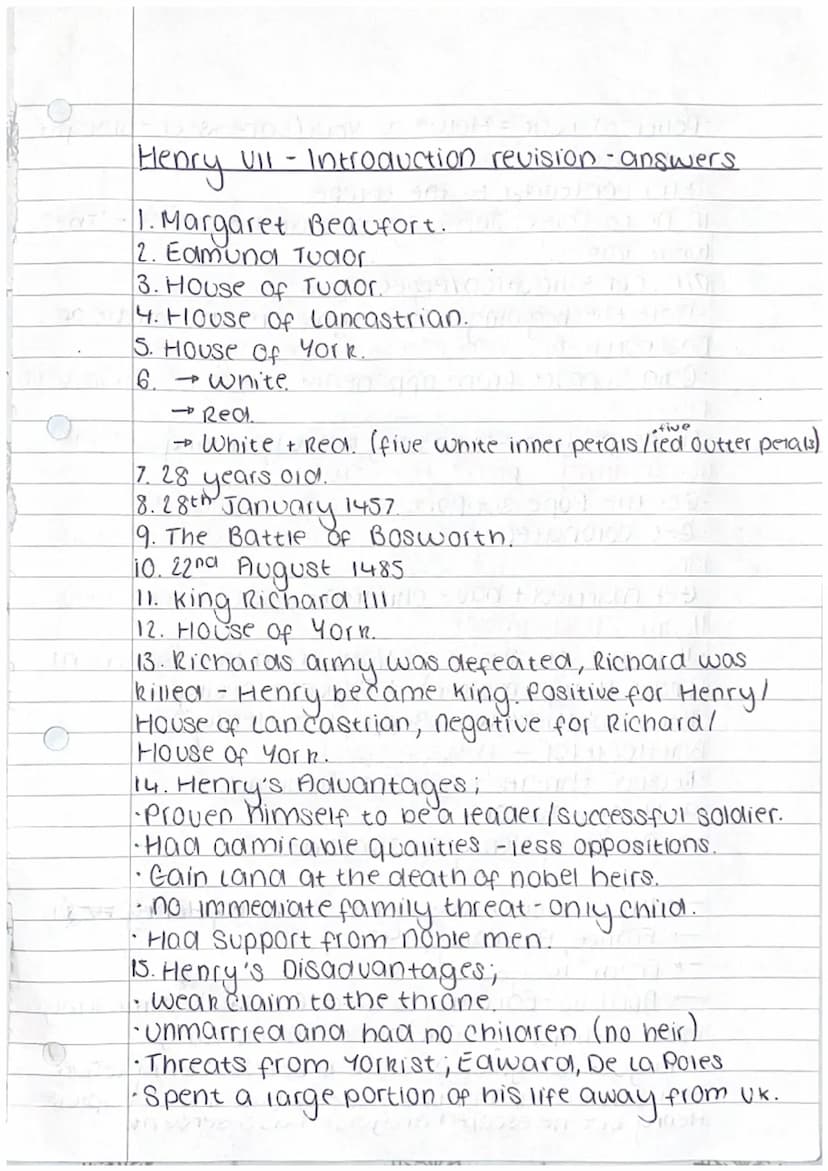 Henry VII - Introduction revision - answers
1. Margaret Beaufort.
2. Edmund Tudor
3. House of Tudor.
4. House of Lancastrian.
5. House of York.
6. → White.
→ Red.
→ White + Red. (five white inner petals / five red outter petals)
7. 28 years old.
8. 28th January 1457
9. The Battle of Bosworth.
10. 22nd August 1485
11. King Richard III
12. House of York.
13. Richards army was defeated, Richard was
killed - Henry became King. Positive for Henry/
House of Lancastrian, negative for Richard/
House of York.
14. Henry's Advantages;
· Proven himself to be a leader/successful soldier.
· Had admirable qualities - less oppositions.
· Gain land at the death of nobel heirs.
· no immediate family threat - only child.
· Had support from noble men.
15. Henry's Disadvantages;
· weak claim to the throne.
· unmarried and had no children (no heir)
· Threats from Yorkist; Edward, De La Poles
· Spent a large portion of his life away from UK.